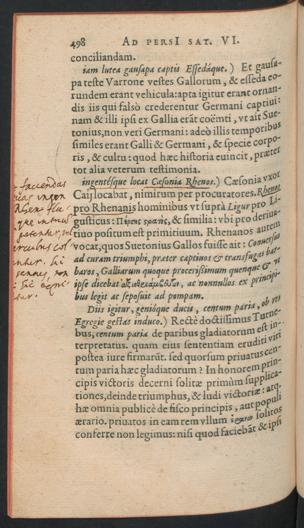 498 AD PERSI SAT. VI.
conciliandam.
iam lutea gausapa captis Essedáque.) Et gausa-
pa teste Varrone vestes Gallorum, & esseda eo-
rundem erant vehicula: apta igitur erant ornan-
dis iis qui falsò crederentur Germani captiui:
nam & illi ipsi ex Gallia erāt coëmti, vt ait Sue-
tonius, non veri Germani: adeò illis temporibus
similes erant Galli & Germani, & specie corpo-
ris, & cultu: quod hæc historia euincit, præter
tot alia veterum testimonia.
ingentésque locat Cæsonia Rhenos.) Cæsonia vxor
Caij locabat, nimirum per procuratores. Rhenos
pro Rhenanis hominibus vt suprà Ligur pro Li-
gusticus: & similia: vbi pro deriua-
tiuo positum est primitiuum. Rhenanos autem
vocat, quos Suetonius Gallos fuisse ait: Conuersus
ad curam triumphi, præter captiuos & transfugas bar-
baros, Galliarum quoque procerissimum quenque & vt
ipse dicebat ἀξιοθριάμβευτον, ac nonnullos ex princi-
bus legit ac seposuit ad pompam.
Diis igitur, genióque ducis, centum paria, ob res
Egregie gestas induco.) Rectè doctissimus Turne-
bus, centum paria de paribus gladiatorum est in-
terpretatus. quam eius sententiam eruditi viri
postea iure firmarūt. sed quorsum priuatus cen-
tum paria hæc gladiatorum? In honorem prin-
cipis victoris decerni solitæ primùm supplica-
tiones, deinde triumphus, & ludi victoriæ: atq.
hæ omnia publicè de fisco principis, aut populi
ærario. priuatos in eam rem vllum solitos
conferre non legimus: nisi quod faciebāt & ipsi